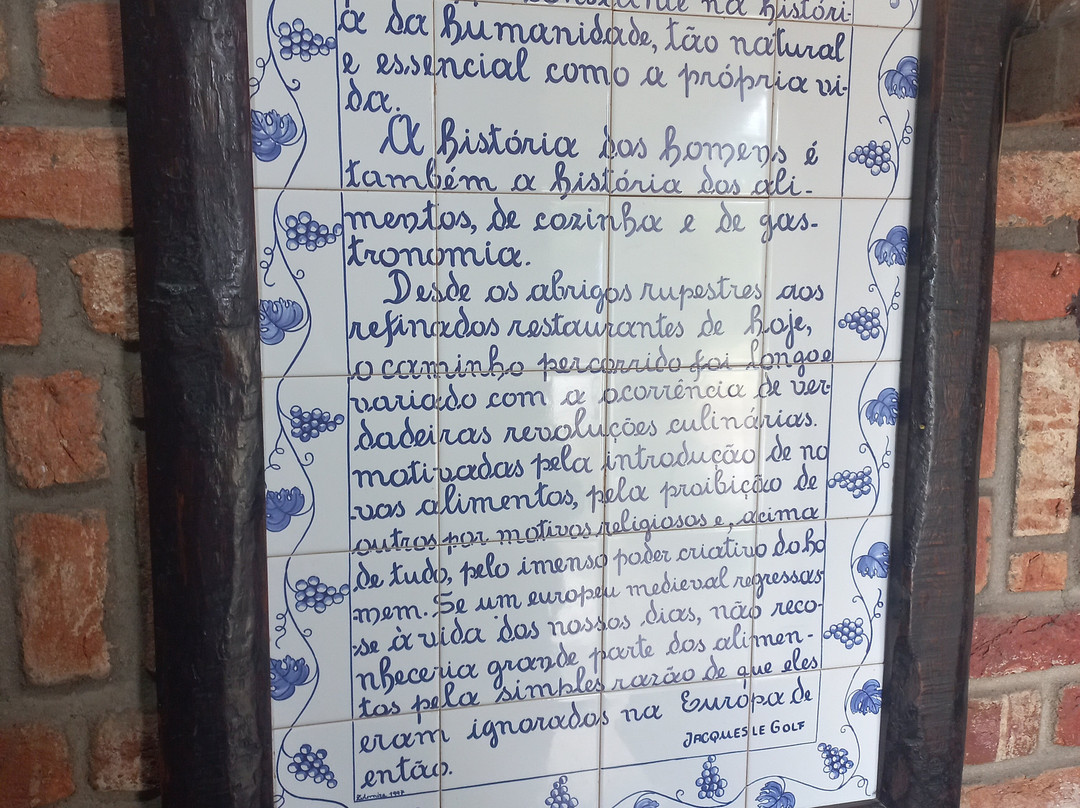 constante na históri-
a da humanidade, tão natural
e essencial como a própria vi-
da.
A história dos homens é
também a história dos ali-
mentos, de cozinha e de gas-
tronomia.
Desde os abrigos rupestres aos
refinados restaurantes de hoje,
o caminho percorrido foi longo e
variado com a ocorrência de ver
dadeiras revoluções culinárias.
motivadas pela introdução de no
vos alimentos, pela proibição de
outros por motivos religiosos e, acima
de tudo, pelo imenso poder criativo do ho
mem. Se um europeu medieval regressas
se à vida dos nossos dias, não reco-
nheceria grande parte dos alimen-
tos pela simples razão de que eles
eram ignorados na Europa de
então.
JACQUES LE GOLF
1997